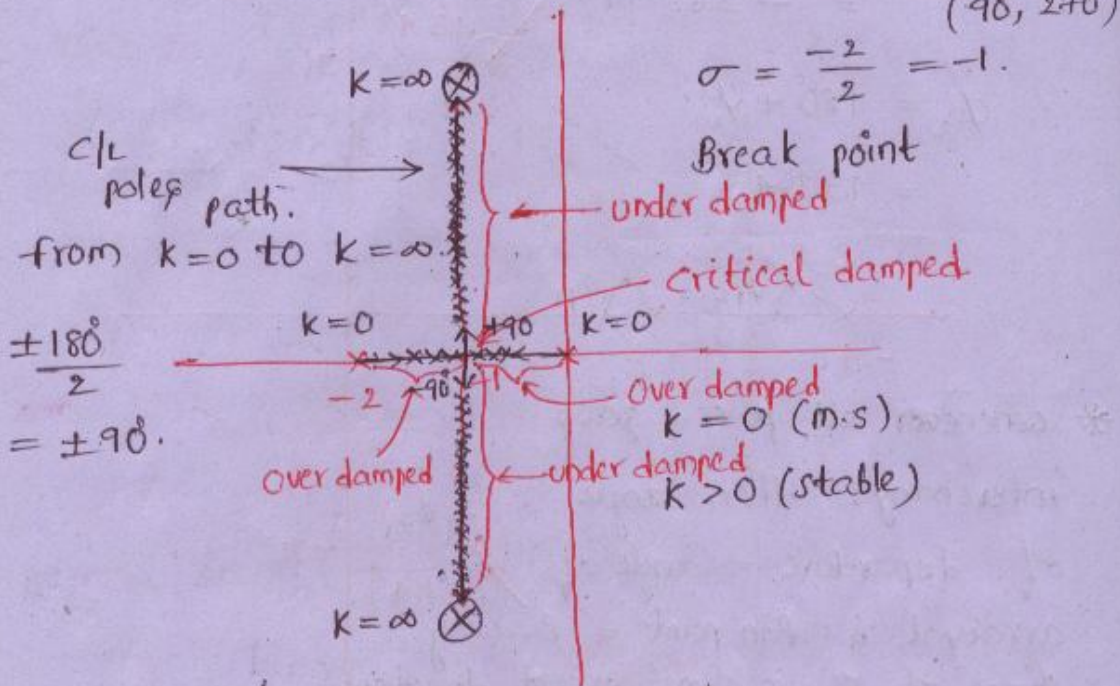 (90, 270)
K = ∞
σ = -2/2 = -1.
C/L poles path.
Break point
under damped
from K=0 to K=∞.
critical damped
K=0
+90
K=0
±180°/2
-2
-90°
-1
Over damped
= ±90°.
K = 0 (m.s)
Over damped
under damped
K > 0 (stable)
K = ∞